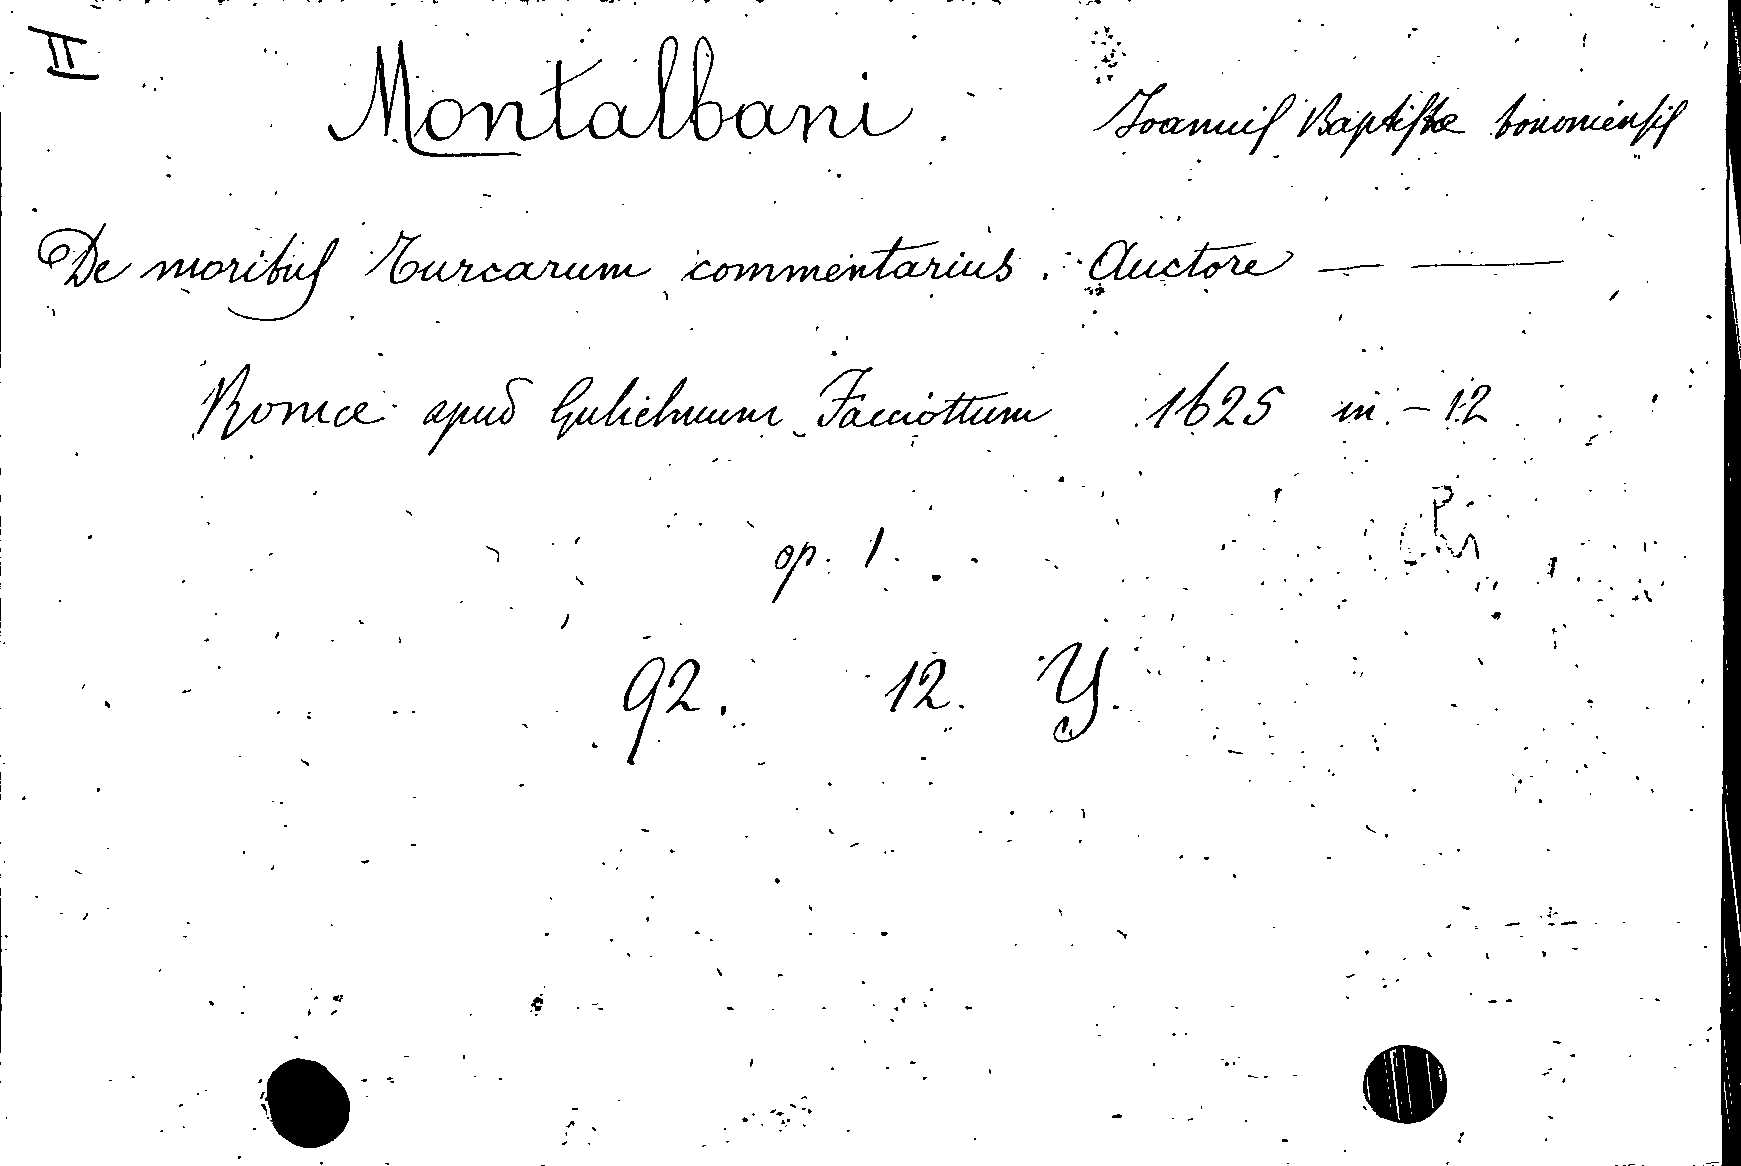 II
Montalbani Joannis Baptistæ bononiensis
De moribus Turcarum commentarius. Auctore — —
Romæ apud Gulielmum Facciottum 1625 in - 12
op. 1.
92. 12. Y.